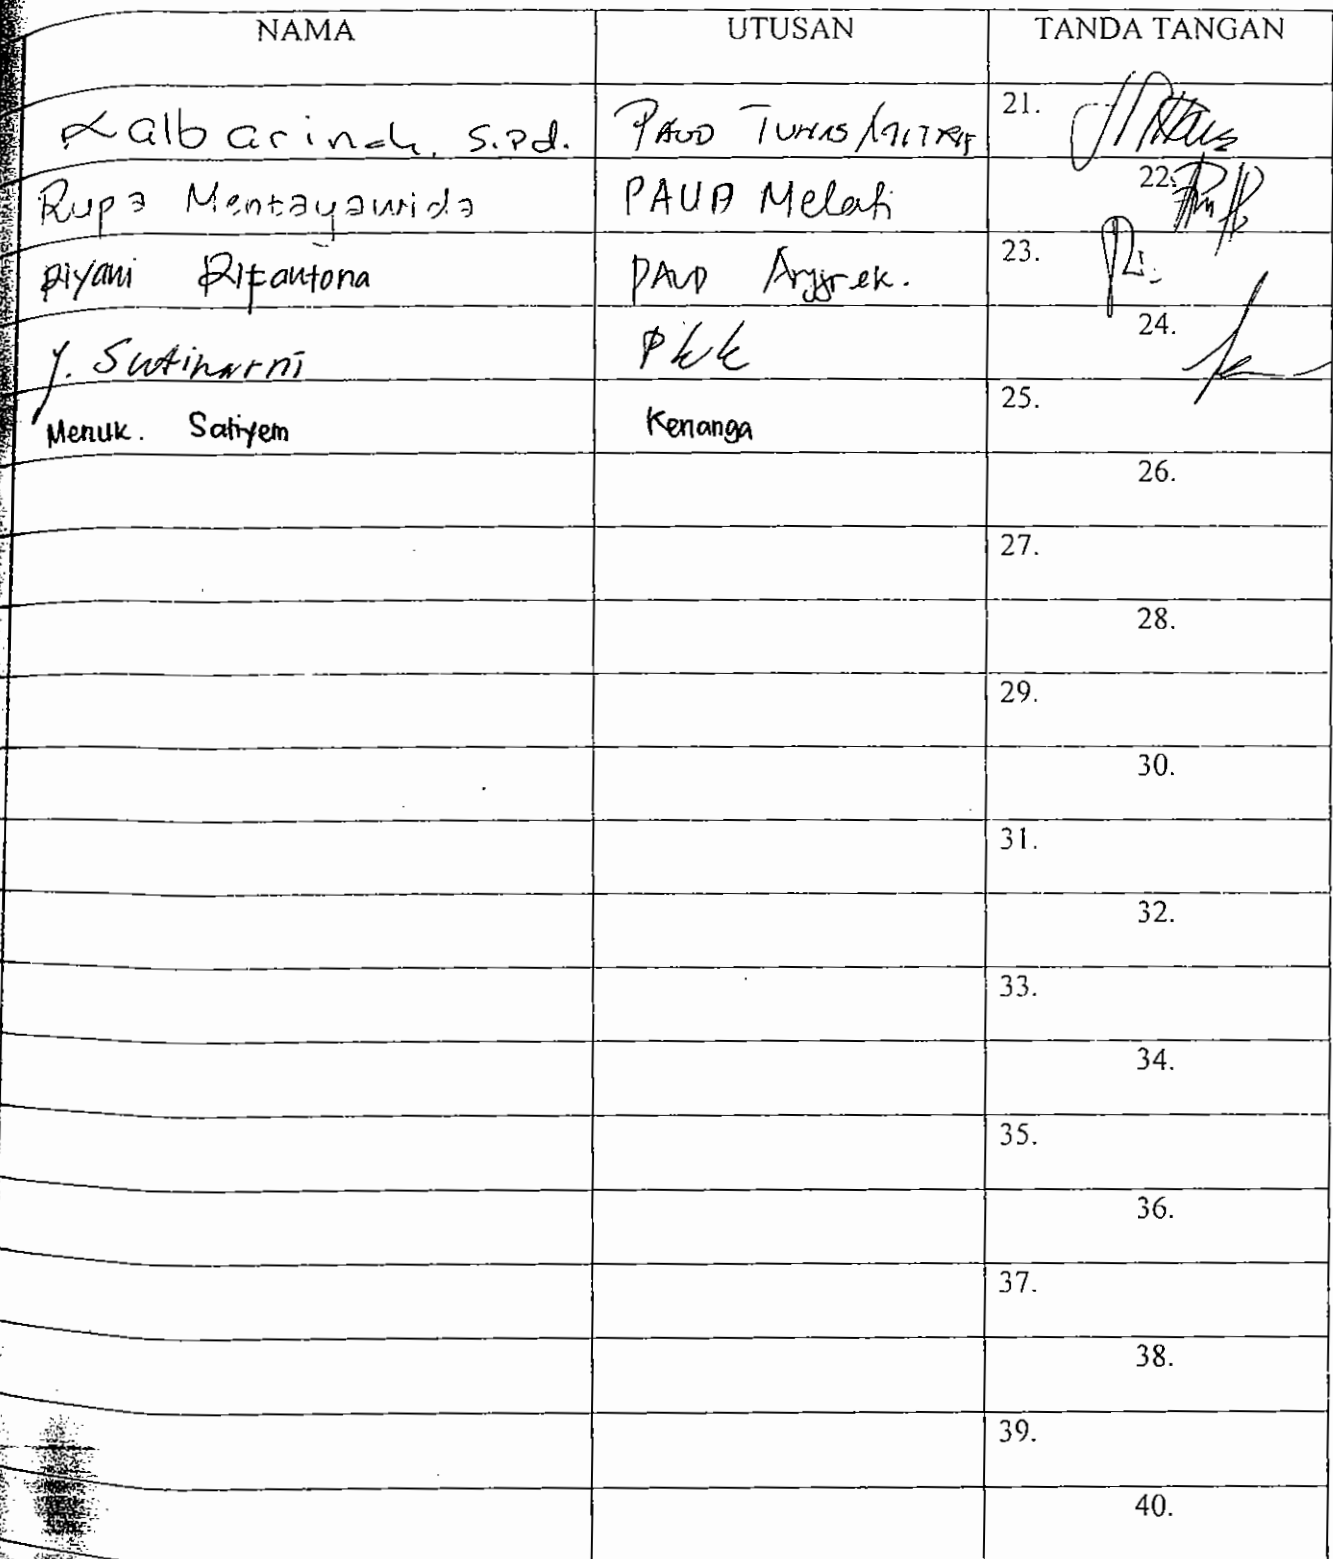 NAMA UTUSAN TANDA TANGAN
Kalbarindah, S.Pd. PAUD TUNAS 21.
Rupa Mentayawida PAUD Melati 22.
Riyani Rifantona PAUD Anggrek. 23.
Y. Sutinarni PKK 24.
Menuk. Satiyem Kenanga 25.
26.
27.
28.
29.
30.
31.
32.
33.
34.
35.
36.
37.
38.
39.
40.